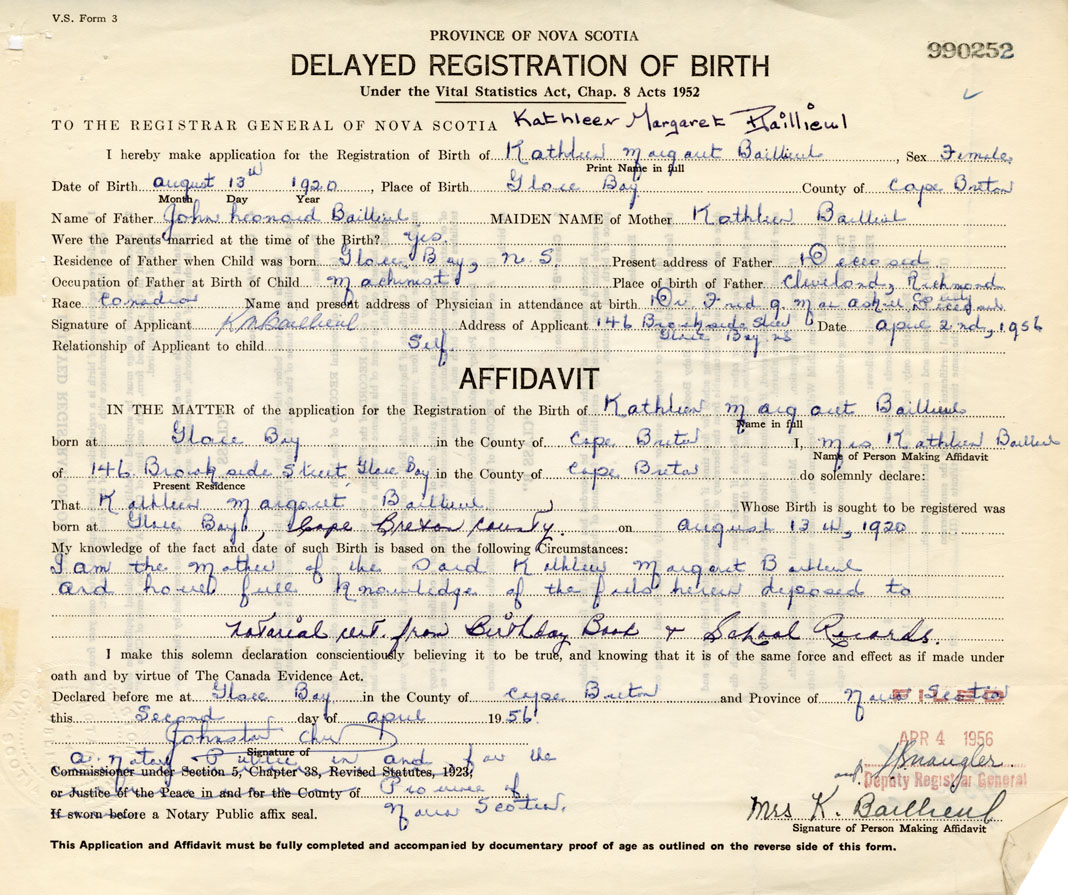 V.S. Form 3
PROVINCE OF NOVA SCOTIA
990252
DELAYED REGISTRATION OF BIRTH
Under the Vital Statistics Act, Chap. 8 Acts 1952
TO THE REGISTRAR GENERAL OF NOVA SCOTIA Kathleen Margaret Baillieul
I hereby make application for the Registration of Birth of Kathleen Margaret Baillieul, Sex Female
Print Name in full
Date of Birth August 13th 1920, Place of Birth Glace Bay County of Cape Breton
Month Day Year
Name of Father John Leonard Baillieul MAIDEN NAME of Mother Kathleen Baillieul
Were the Parents married at the time of the Birth? Yes.
Residence of Father when Child was born Glace Bay, N.S. Present address of Father Deceased
Occupation of Father at Birth of Child Machinist Place of birth of Father Cleveland, Richmond County
Race Canadian Name and present address of Physician in attendance at birth Dr Fred g. MacAskill Deceased
Signature of Applicant K M Baillieul Address of Applicant 146 Brookside Street Glace Bay NS Date April 2nd, 1956
Relationship of Applicant to child Self.
AFFIDAVIT
IN THE MATTER of the application for the Registration of the Birth of Kathleen Margaret Baillieul
Name in full
born at Glace Bay in the County of Cape Breton I, Mrs Kathleen Baillieul
Name of Person Making Affidavit
of 146 Brookside Street, Glace Bay in the County of Cape Breton do solemnly declare:
Present Residence
That Kathleen Margaret Baillieul Whose Birth is sought to be registered was
born at Glace Bay, Cape Breton County. on August 13th, 1920
My knowledge of the fact and date of such Birth is based on the following Circumstances:
I am the mother of the said Kathleen Margaret Baillieul
and have full knowledge of the facts herein deposed to
Notarial cert. from Birthday Book + School Records.
I make this solemn declaration conscientiously believing it to be true, and knowing that it is of the same force and effect as if made under
oath and by virtue of The Canada Evidence Act.
Declared before me at Glace Bay in the County of Cape Breton and Province of Nova Scotia
this Second day of April 1956
Johnston
Signature of
APR 4 1956
a notary Public in and for the
Commissioner under Section 5, Chapter 38, Revised Statutes, 1923;
or Justice of the Peace in and for the County of Province of
Deputy Registrar General
If sworn before a Notary Public affix seal. Nova Scotia.
Mrs K. Baillieul
Signature of Person Making Affidavit
This Application and Affidavit must be fully completed and accompanied by documentary proof of age as outlined on the reverse side of this form.